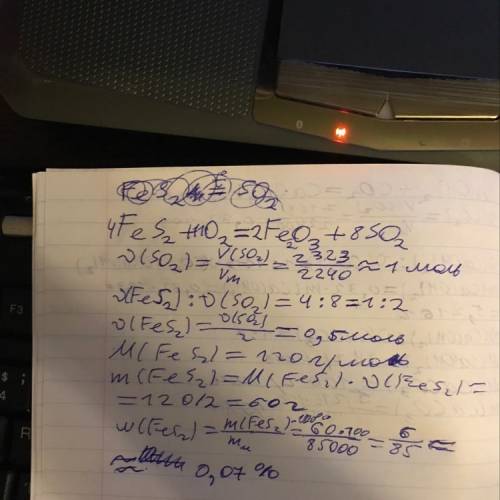 4FeS₂ + 11O₂ = 2Fe₂O₃ + 8SO₂
ν(SO₂) = V(SO₂)/Vm = 2323/2240 ≈ 1 моль
ν(FeS₂) : ν(SO₂) = 4 : 8 = 1 : 2
ν(FeS₂) = ν(SO₂)/2 = 0,5 моль
M(FeS₂) = 120 г/моль
m(FeS₂) = M(FeS₂) · ν(FeS₂) =
= 120/2 = 60 г
w(FeS₂) = m(FeS₂)·100%/mм = 60·100/85000 = 6/85 ≈
≈ 0,07 %